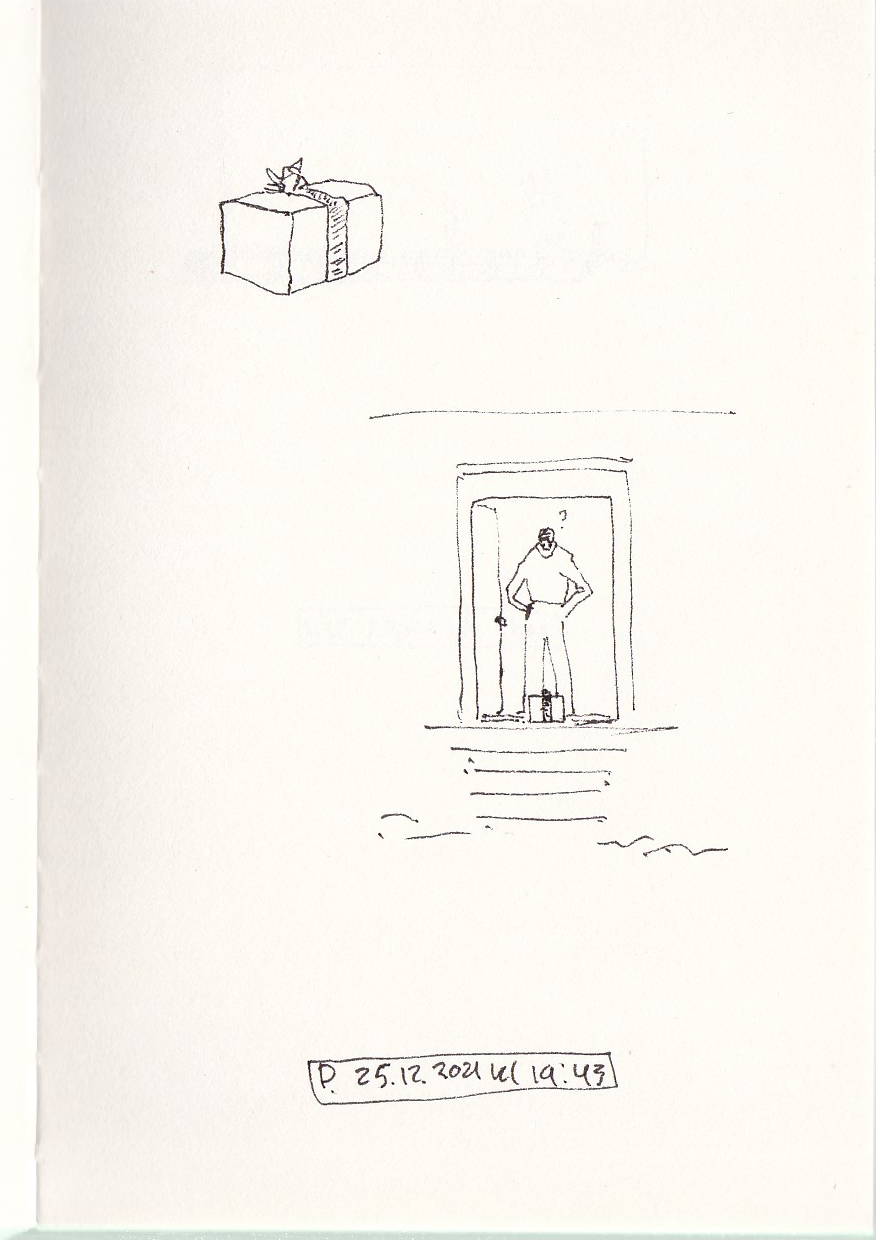 ?
P. 25.12.2021 kl 19:43